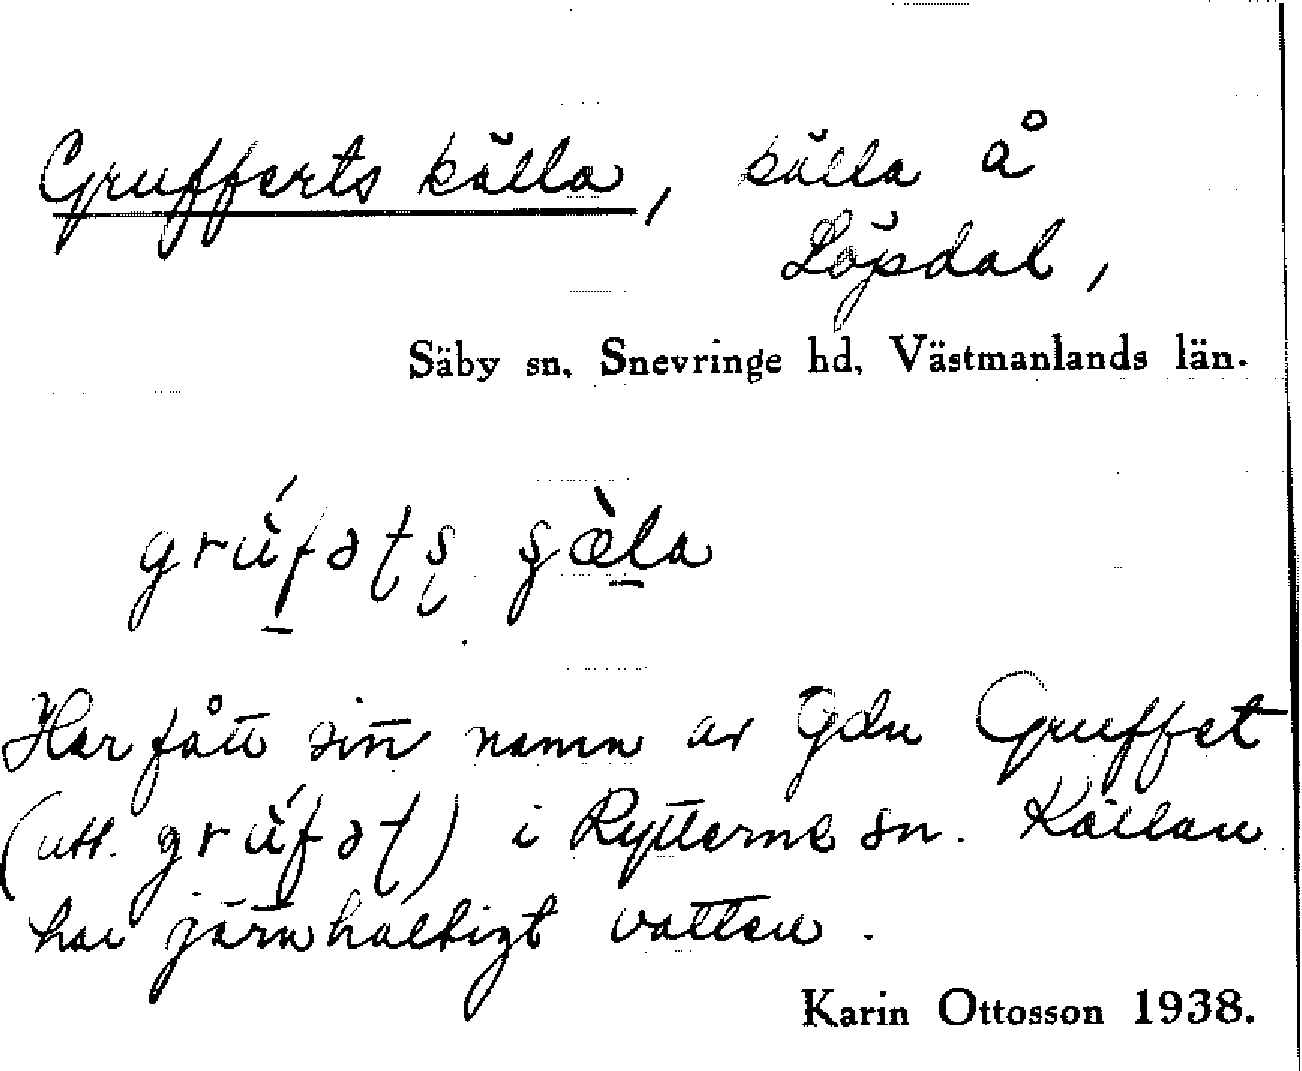 Grufferts källa, källa å
Löpdal,
Säby sn. Snevringe hd, Västmanlands län.
Har fått sitt namn av gdn Gruffet
(utt. ) i Rytterne sn. Källan
har järnhaltigt vatten.
Karin Ottosson 1938.